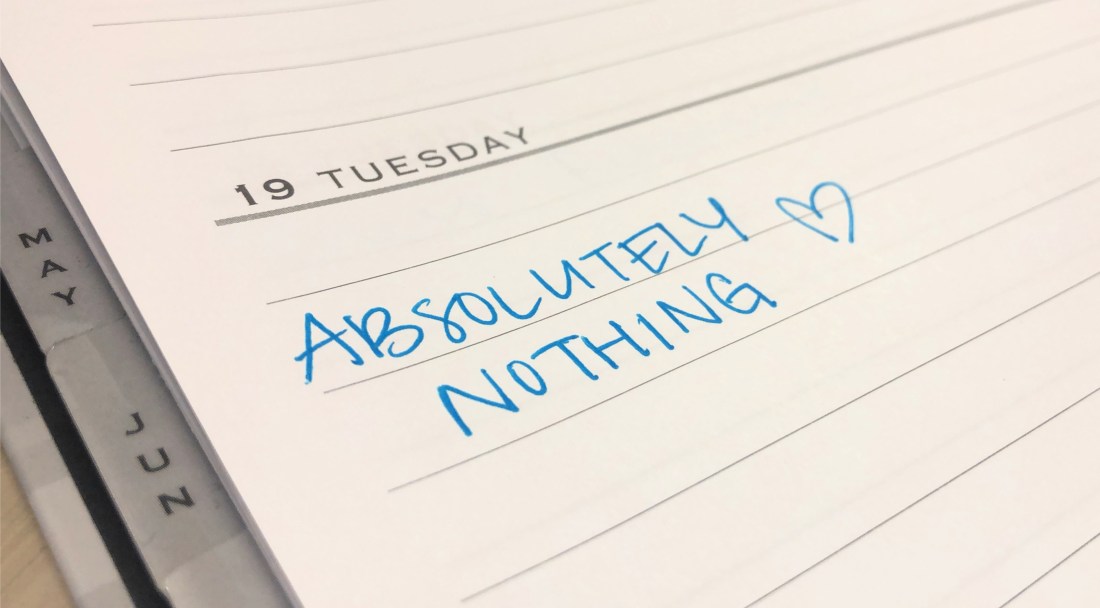 19 TUESDAY
ABSOLUTELY ♡
NOTHING
MAY
JUN